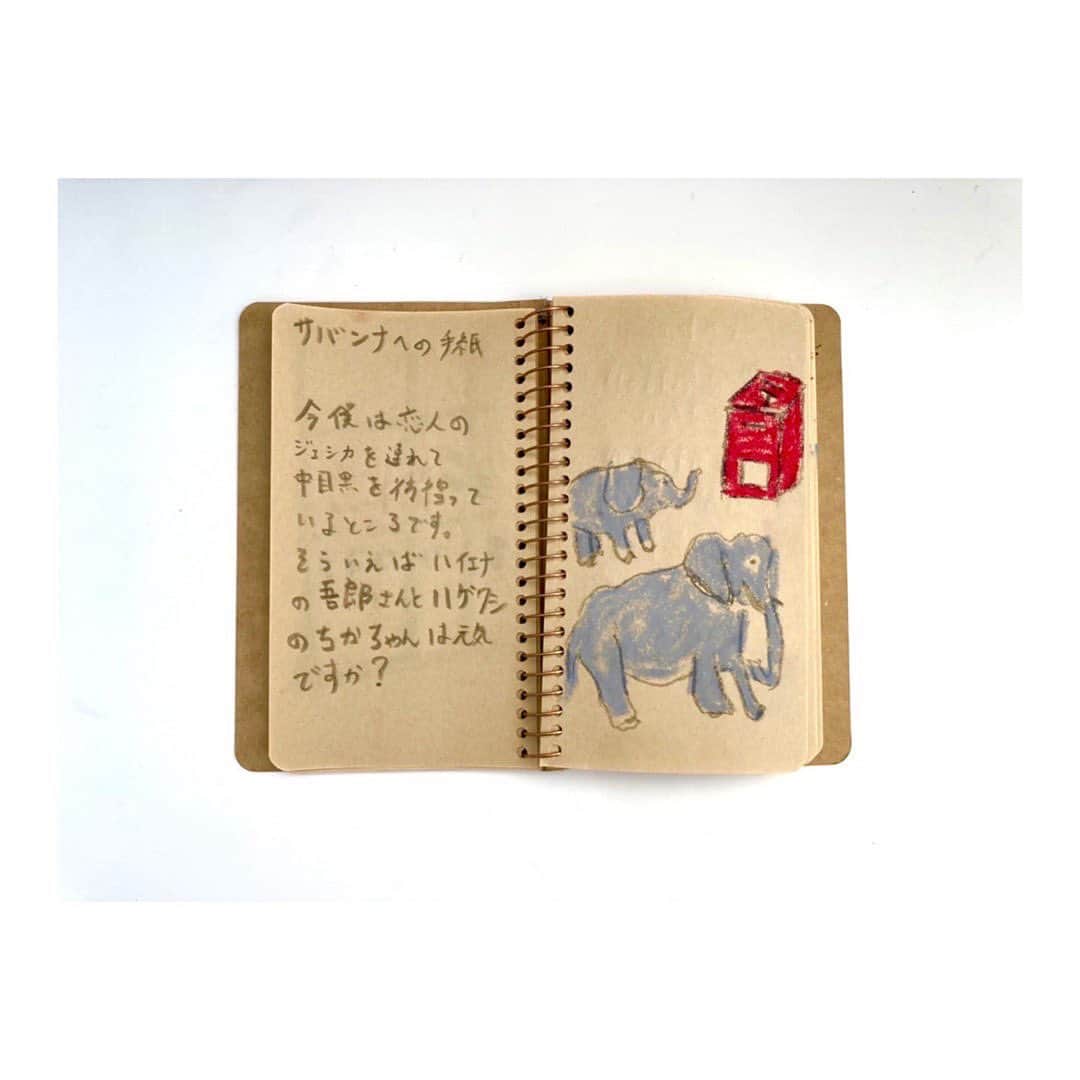 サバンナへの手紙
今僕は恋人の
ジェシカを連れて
中目黒を彷徨って
いるところです。
そういえばハイエナ
の吾郎さんとハゲワシ
のちかちゃんは元気
ですか?